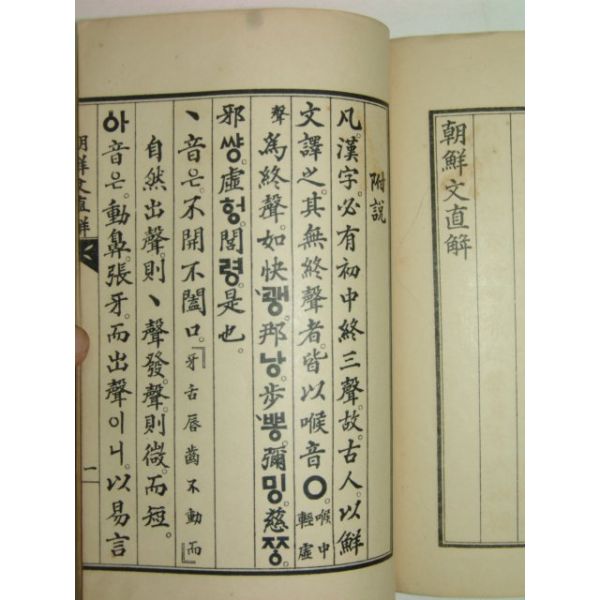 朝鮮文直解
附說
凡漢字。必有初中終三聲。故古人。以鮮
文譯之。其無終聲者。皆以喉音ㅇ。喉中輕虛
聲爲終聲。如快괭。那낭。步뽕。彌밍。慈ᄍᆞᆼ。
邪썅。虛헝。閭령。是也。
丶音은。不開不闔口。『牙舌唇齒不動而』
自然出聲。則丶聲發聲。則微。而短。
아音은。動鼻。張牙。而出聲이니。以易言
朝鮮文直解
一